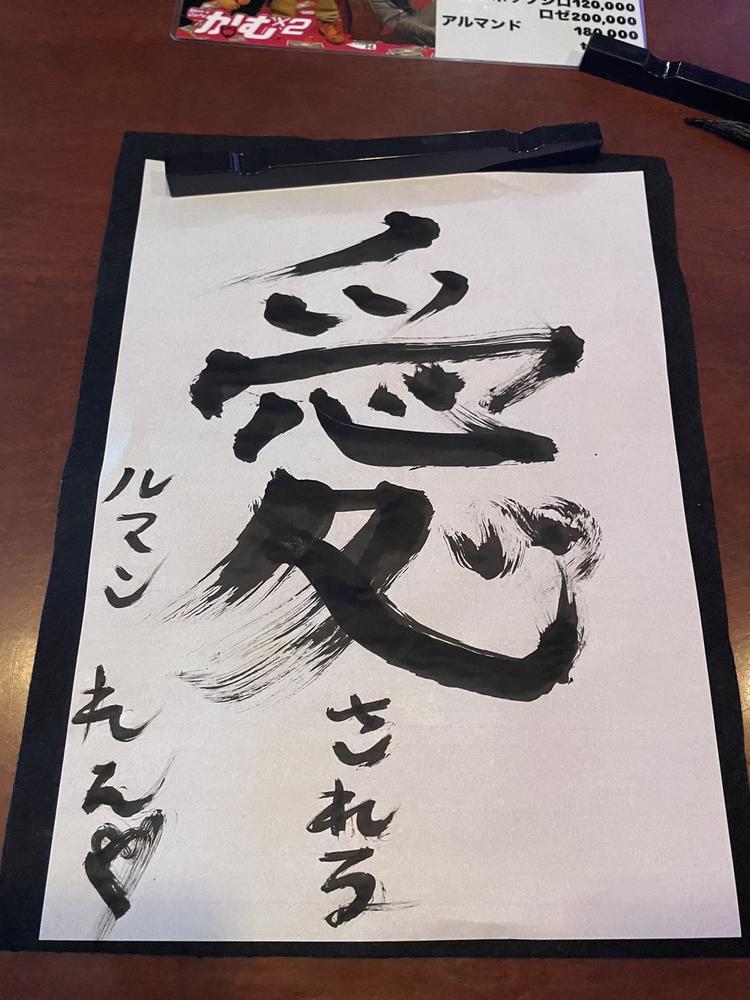 ロ120,000
ロゼ200,000
アルマンド
180,000
愛
される
ルマン
れん